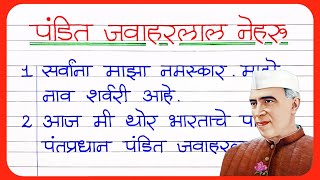 पंडित जवाहरलाल नेहरू
1 सर्वाना माझा नमस्कार. माझे
नाव शर्वरी आहे.
2 आज मी थोर भारताचे
पंतप्रधान पंडित